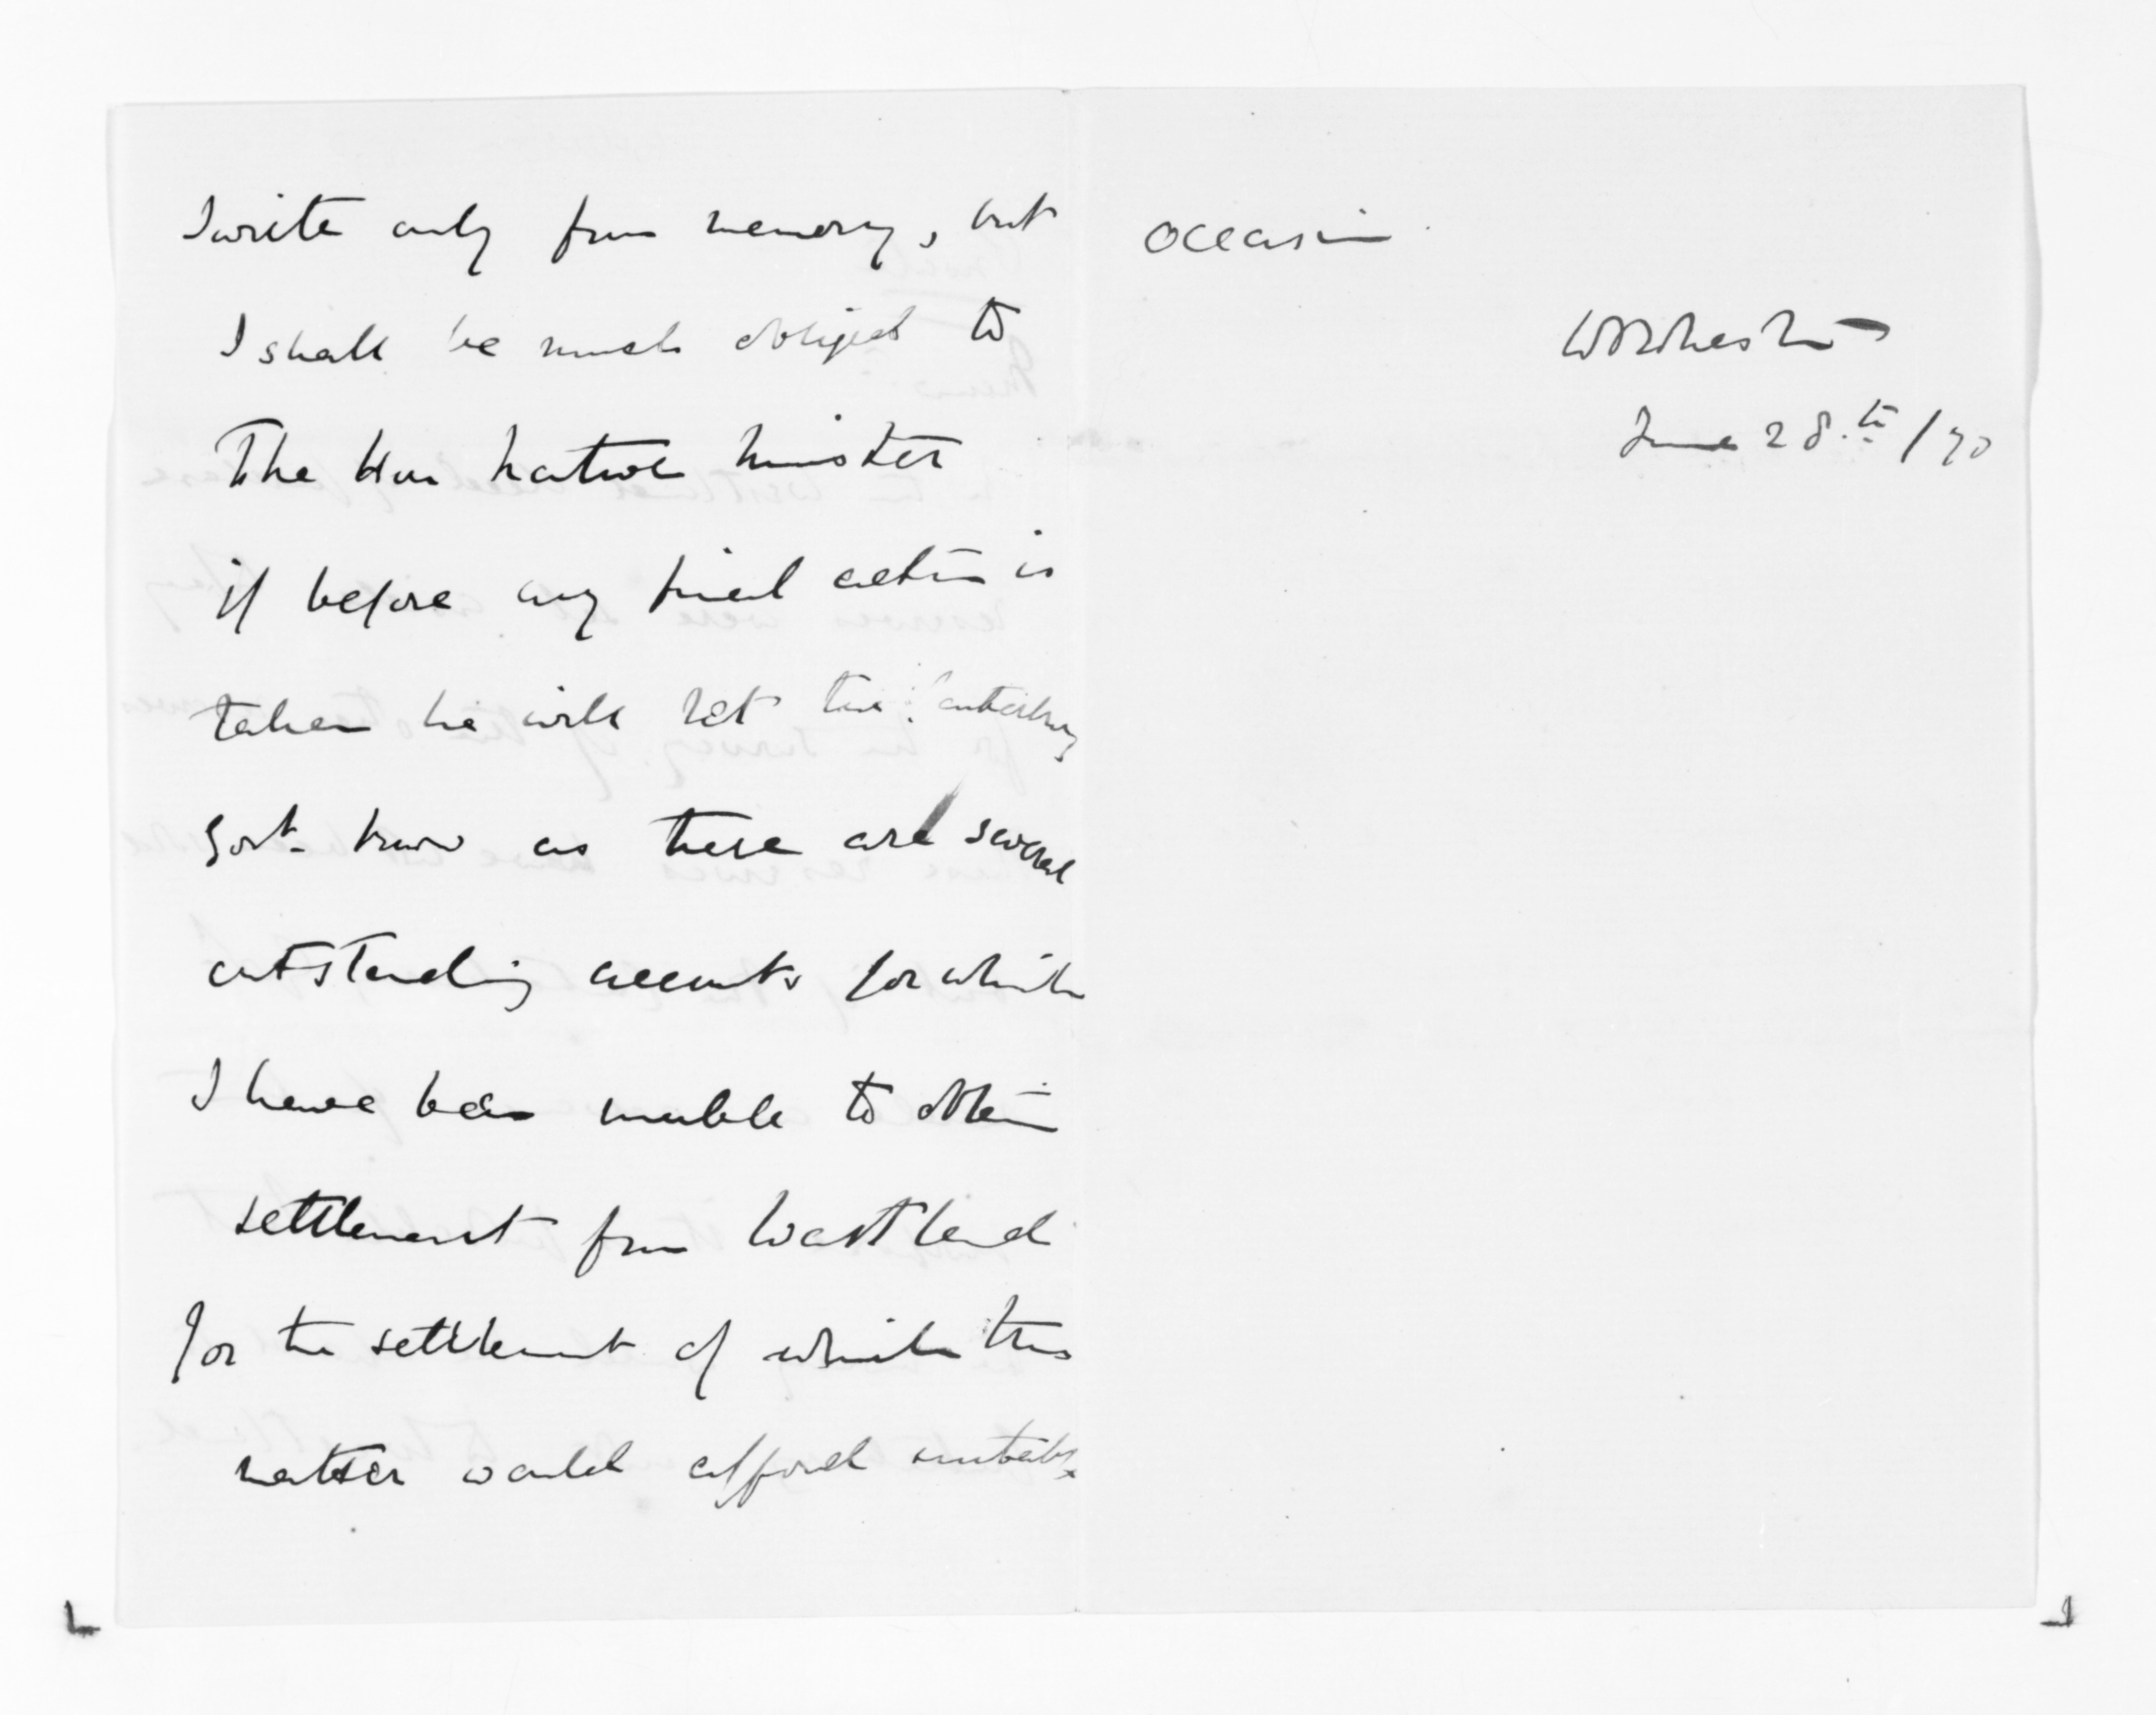 I write only from memory, but
I shall be much obliged to
The Hon Native Minister
if before any final action is
taken he will let the Canterbury
Govt know as there are several
outstanding accounts for which
I have been unable to obtain
settlement from Westland
for the settlement of which this
matter would afford suitable
occasion
June 28.th /70